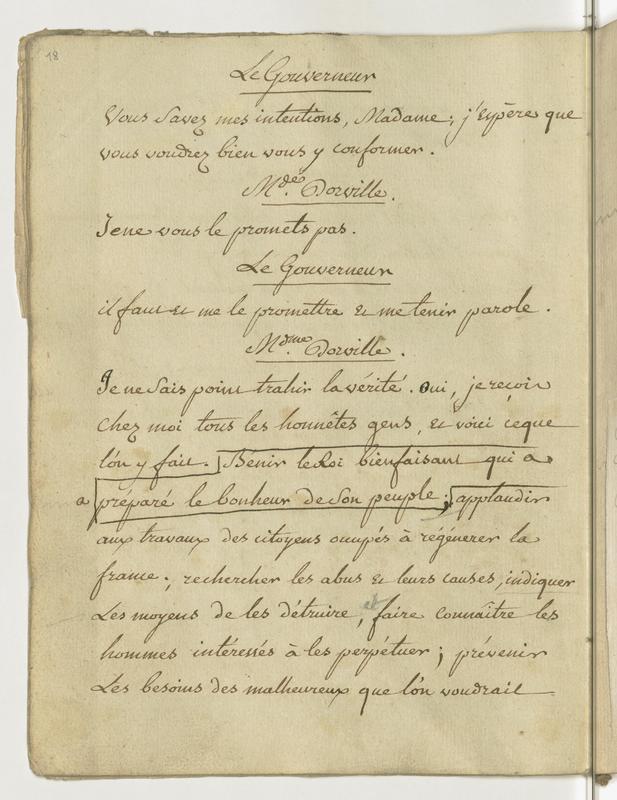 18
Le Gouverneur
Vous Savez mes intentions, Madame; j'espère que
vous voudrez bien vous y conformer.
Mde. Dorville.
Je ne vous le promets pas.
Le Gouverneur
il faut et me le promettre et me tenir parole.
Mdme. Dorville.
Je ne Sais point trahir la vérité. Oui, je reçoin
chez moi tous les honnêtes gens, et voici ce que
l'on y fait. Bénir le Roi bienfaisant qui a
a préparé le bonheur de son peuple; applaudir
aux travaux des citoyens occupés à régénerer la
france; rechercher les abus et leurs causes, indiquer
Les moyens de les détruire, et faire connaître les
hommes intéressés à les perpétuer; prévenir
Les besoins des malheureux que l'on voudrait